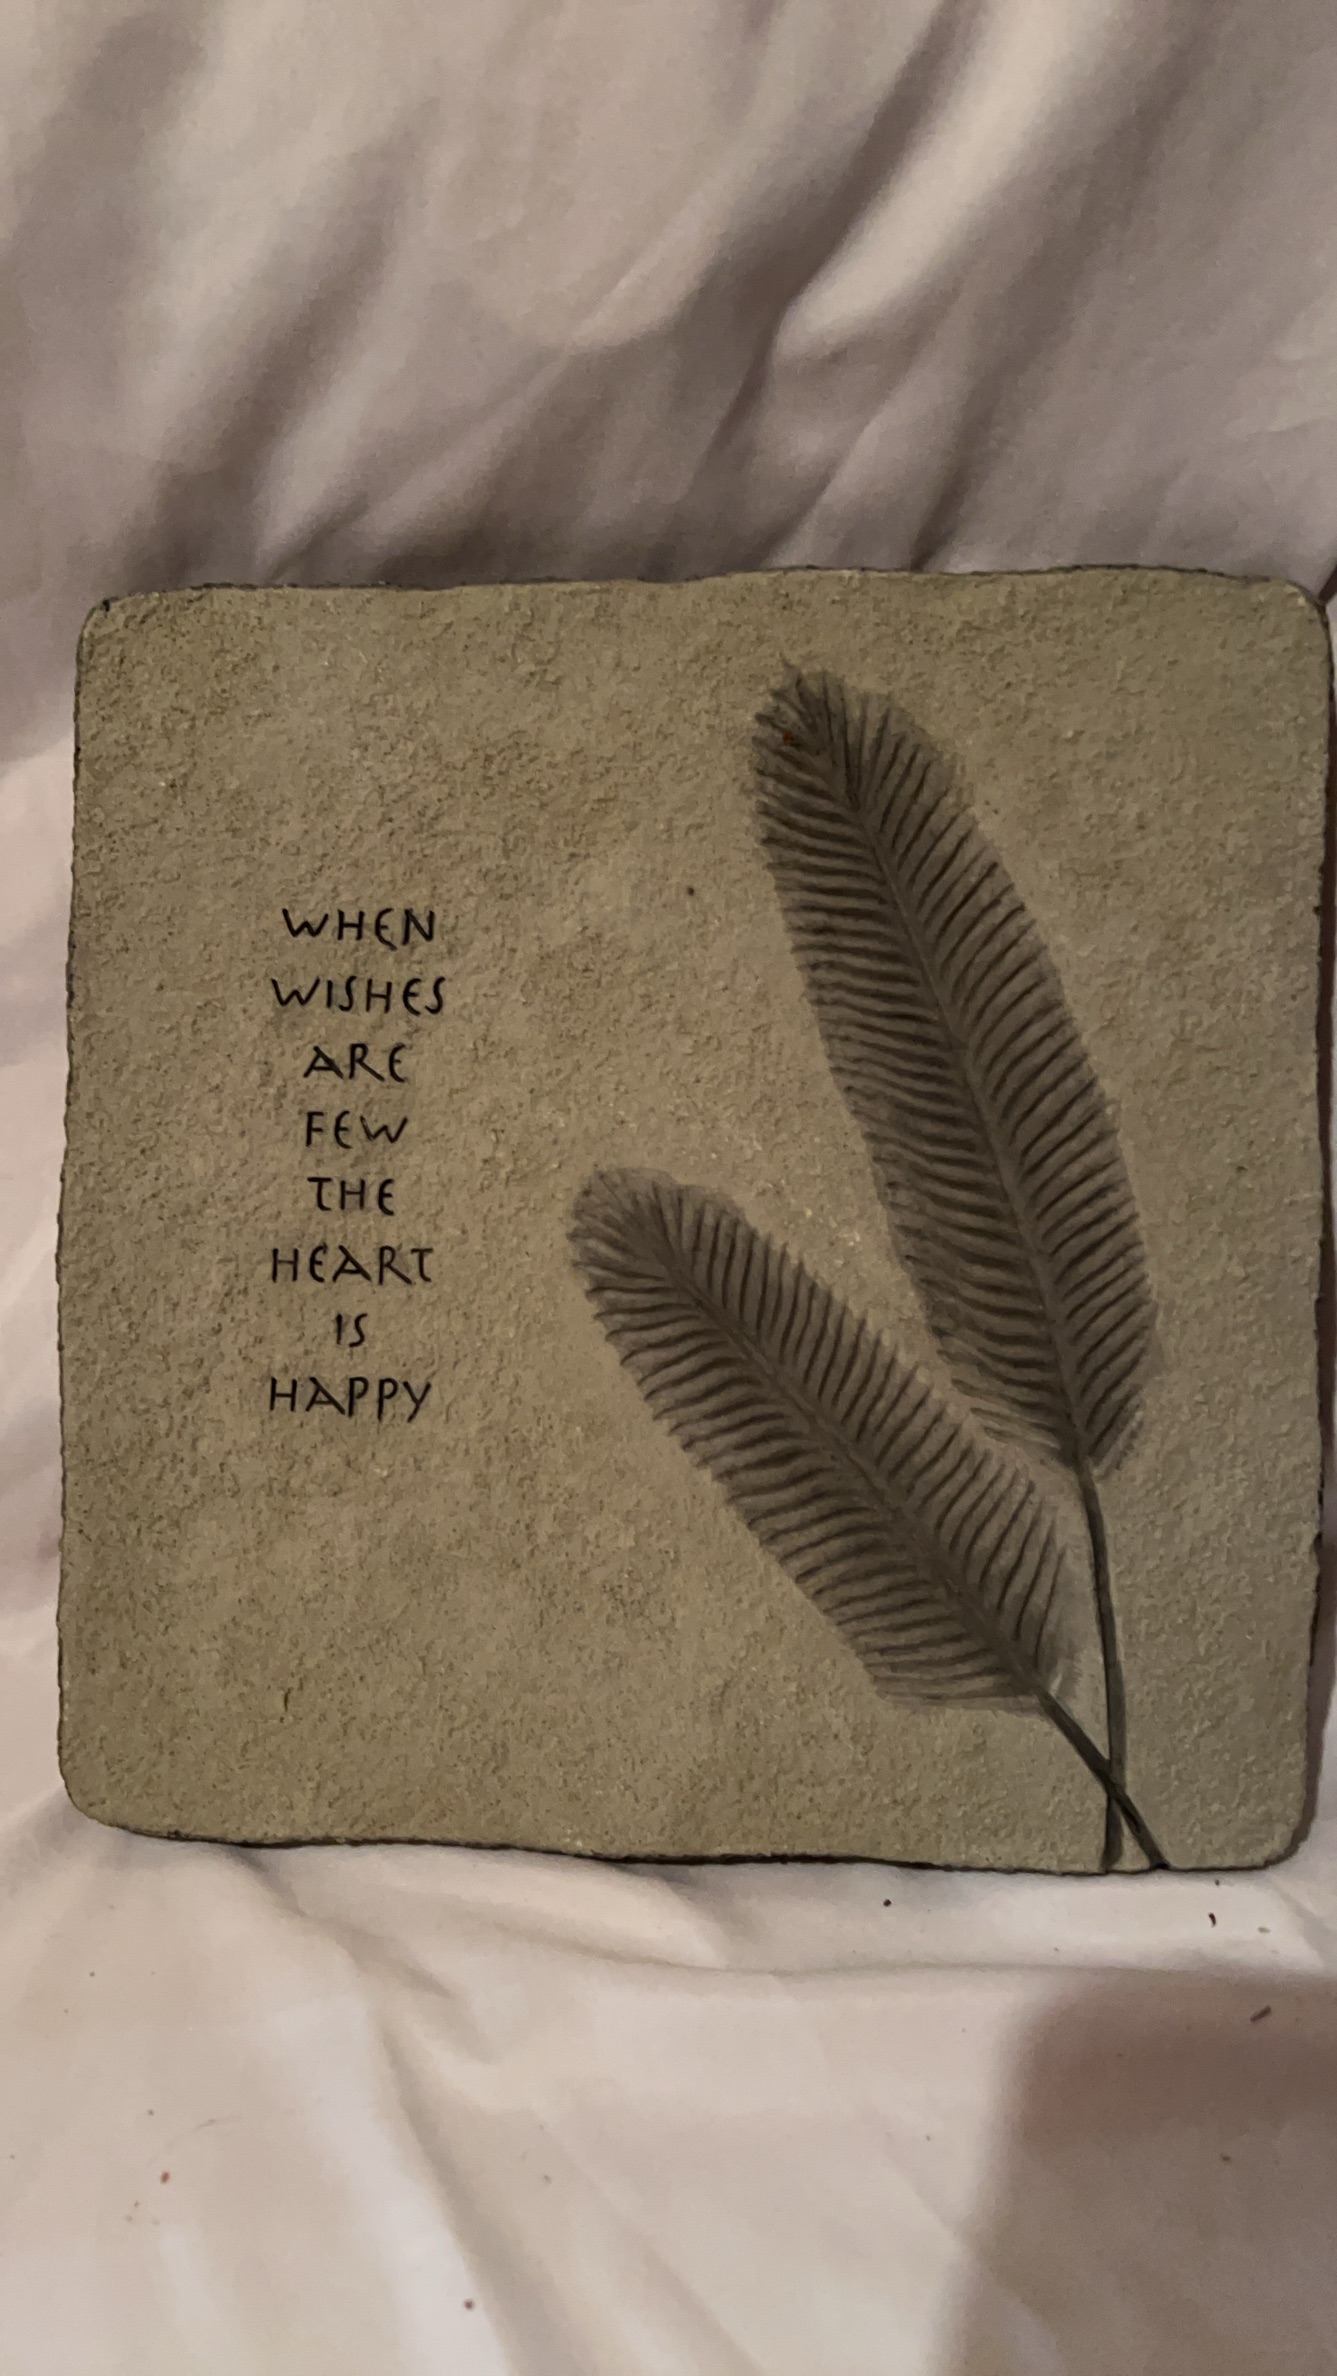 WHEN
WISHES
ARE
FEW
THE
HEART
IS
HAPPY